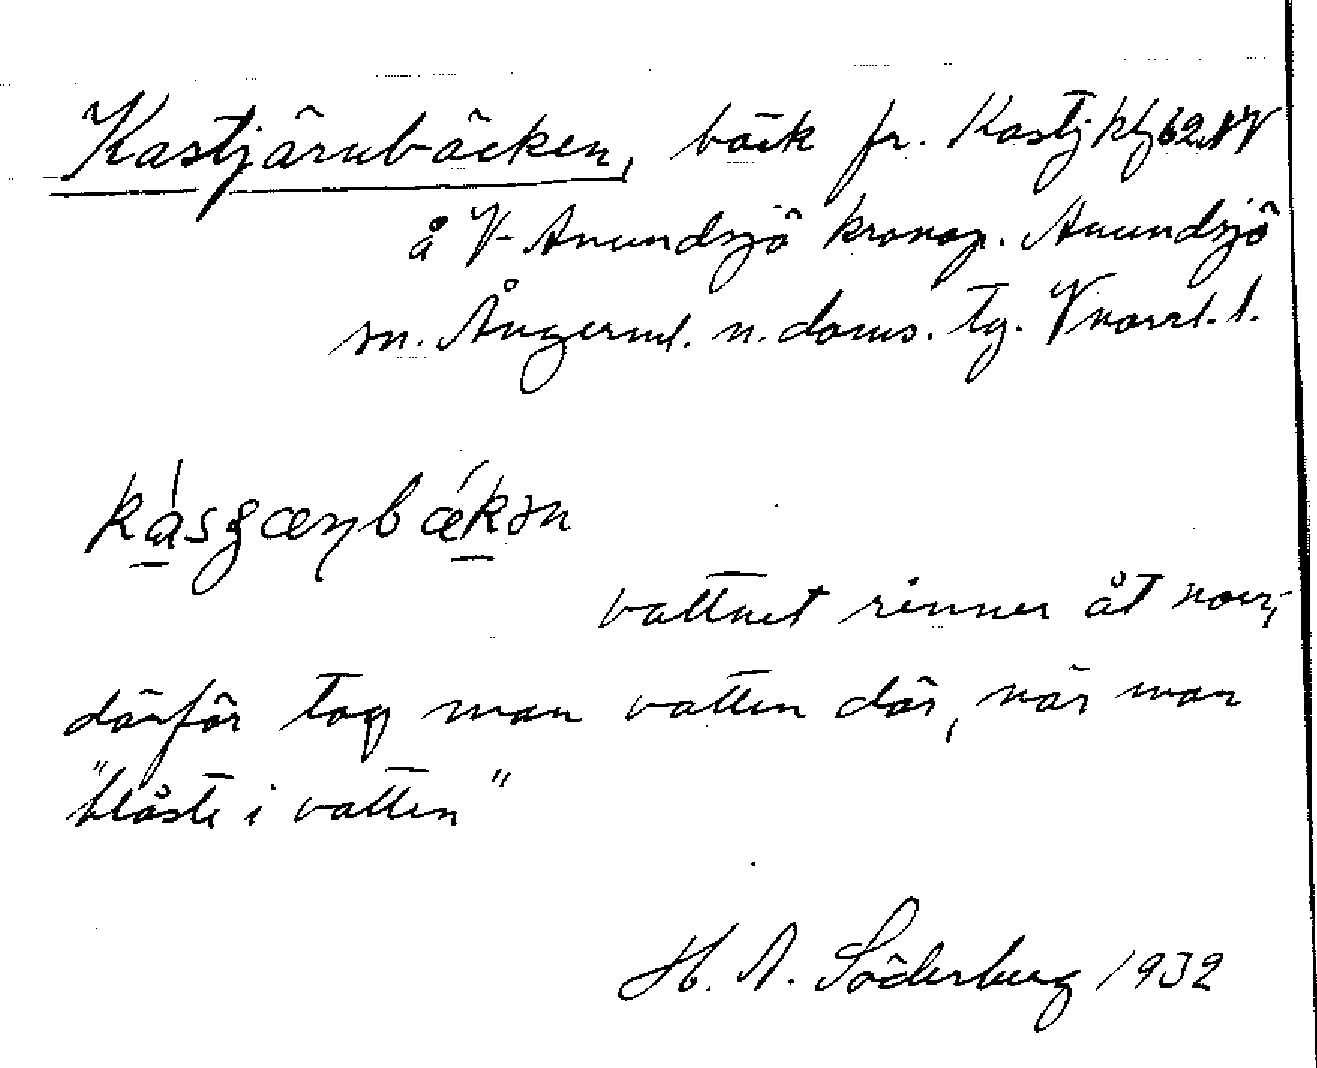 Kastjärnbäcken, bäck fr. Kastj kfj 62 NV
å V. Anundsjö kronop. Anundsjö
sn. Ångerml. n. doms. tg. Vnorrl. l.
vattnet rinner åt norr,
därför tog man vatten där, när man
"blåste i vatten"
H. A. Söderberg 1932